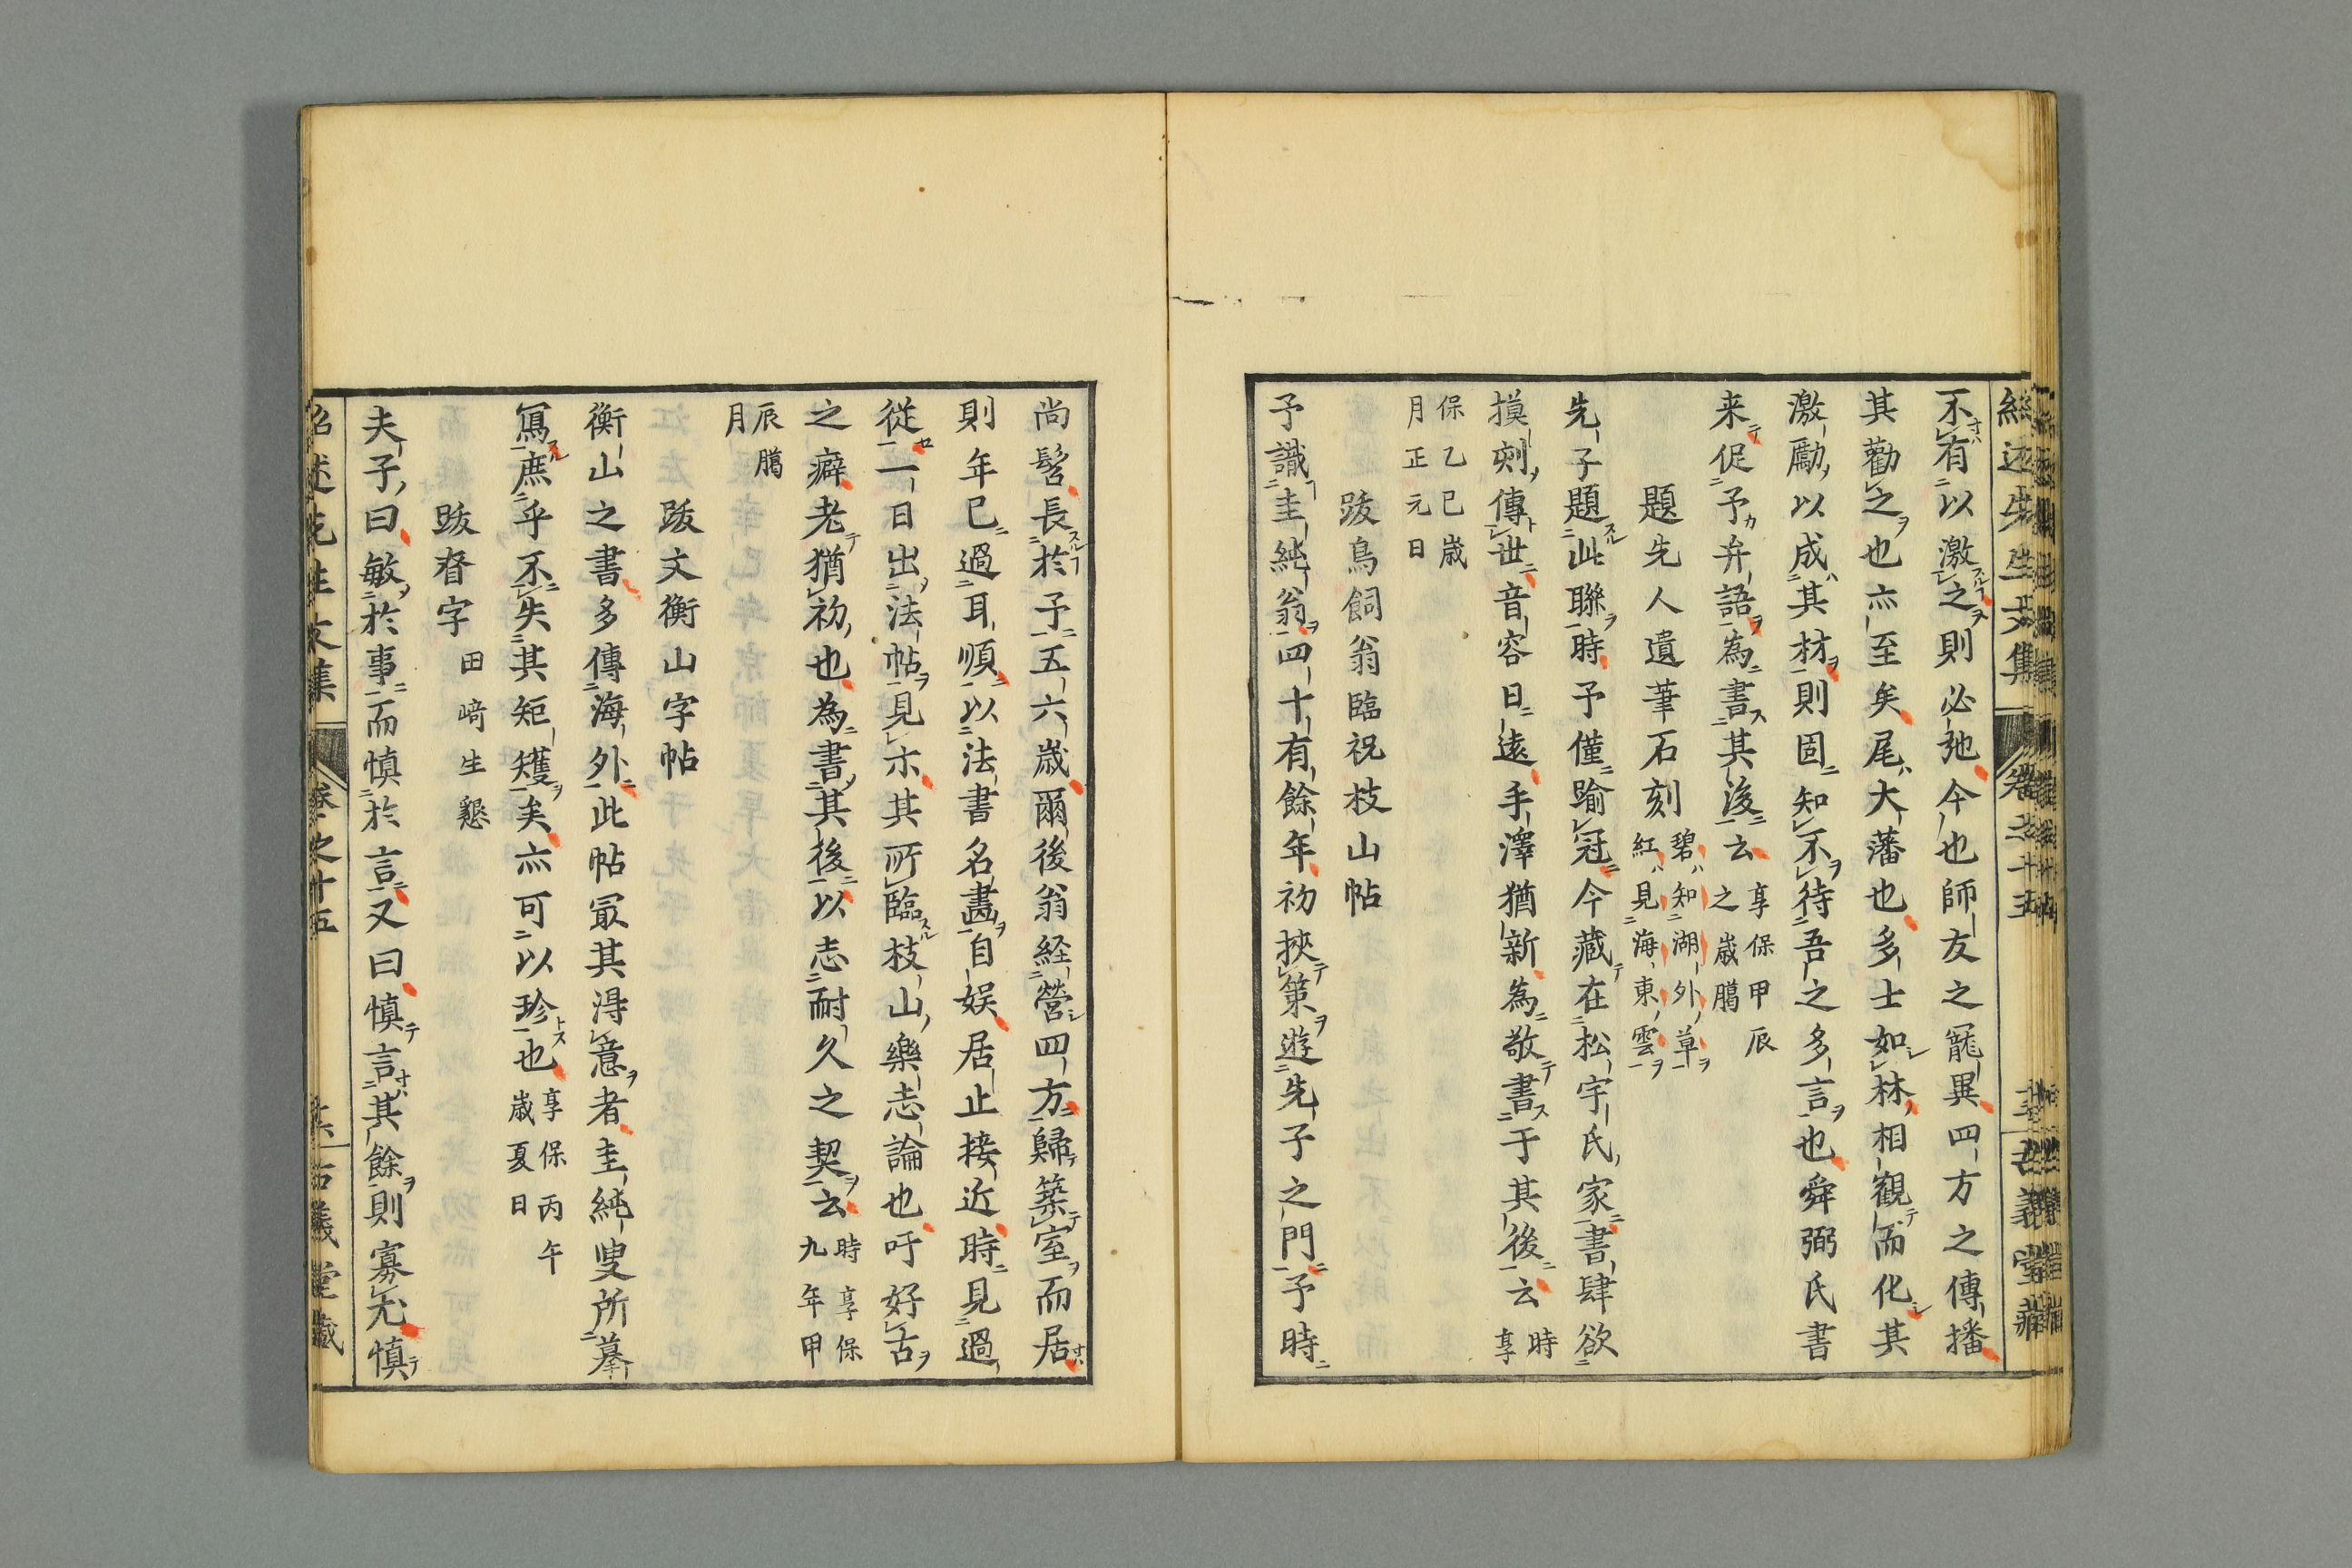 不有以激之則必弛今也師友之寵異四方之傳播
其勸之也亦至矣尾大藩也多士如林相觀而化其
激勵以成其材則固知不待吾之多言也舜弼氏書
来促予弁語為書其後云享保甲辰之歳臈
題先人遺筆石刻碧知湖外草紅見海東雲
先子題此聯時予僅踰冠今藏在松宇氏家書肆欲
摸刻傳世音容日遠手澤猶新為敬書于其後云時享
保乙巳歳月正元日
跋鳥飼翁臨祝枝山帖
予識圭純翁四十有餘年初挾策遊先子之門予時
尚髫長於予五六歳爾後翁経營四方歸築室而居
則年已過耳順以法書名畫自娯居止接近時見過
從一日出法帖見示其所臨枝山樂志論也吁好古
之癖老猶初也為書其後以志耐久之契云時享保九年甲
辰臈月
跋文衡山字帖
衡山之書多傳海外此帖冣其得意者圭純叟所摹
寫庶乎不失其矩矱矣亦可以珍也享保丙午歳夏日
跋眘字田﨑生懇
夫子曰敏於事而慎於言又曰慎言其餘則寡尤慎
紹述先生文集 卷之十五 古義堂藏